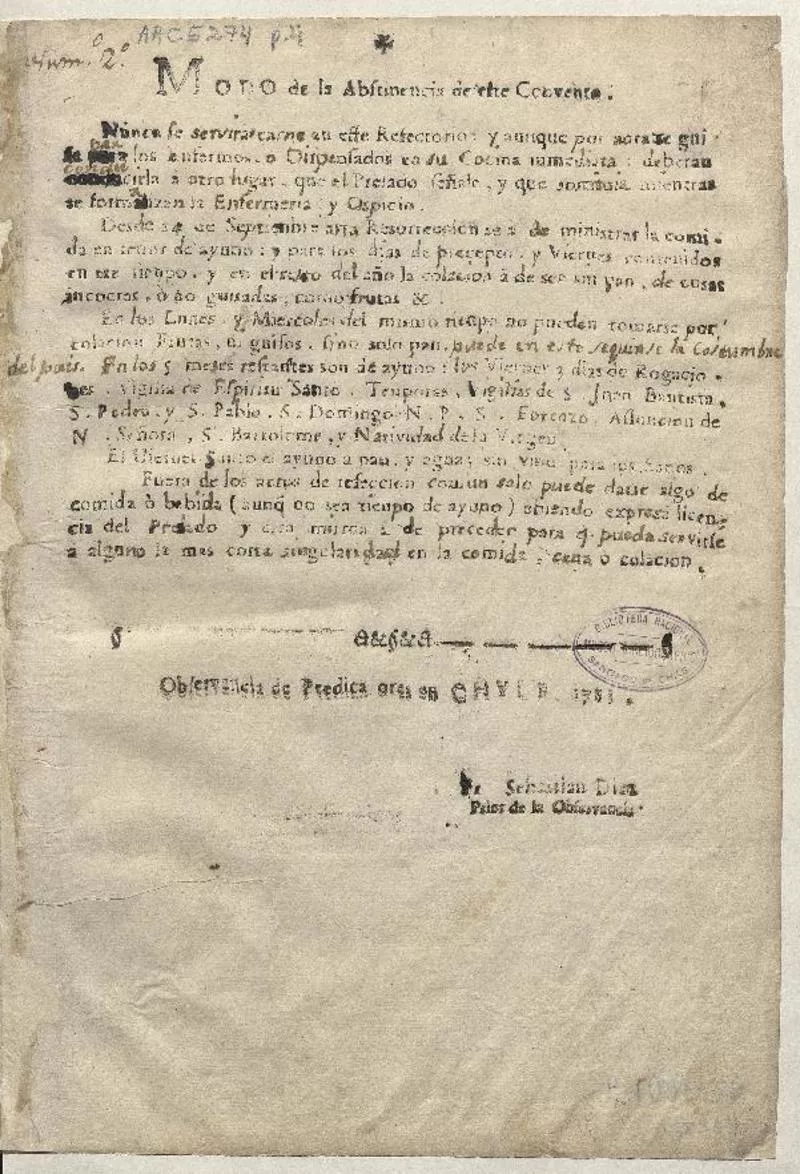 ARCE274 p.4
Num.º 2.º
MODO de la Abstinencia de este Convento.
Nunca se servirá carne en este Refectorio: y aunque por aora se gui-
se para los Enfermos, o Dispensados en su Cocina inmediata; deberan
conducirla à otro lugar, que el Prelado señale, y que mientras
se formalizen la Enfermeria, y Ospicio.
Desde 14 de Septiembre asta Resurreccion se à de ministrar la comi-
da en tenor de ayuno: y para los dias de precepto, y Viernes contenidos
en ese tiempo, y en el resto del año la colacion à de ser sin pan, de cosas
incoctas, ò no guisadas, como frutas &.
En los Lunes, y Miercoles del mismo tiempo no pueden tomarse por
colacion Frutas, ni guisos, sino solo pan. puede en esto seguirse la Costumbre
del pais. En los 5 meses restantes son de ayuno: los Viernes 3 dias de Rogacio-
nes, Vigilia de Espiritu Santo, Temporas, Vigilias de S. Juan Bautista,
S. Pedro, y S. Pablo, S. Domingo N. P. S. Lorenzo, Assuncion de
N. Señora, S. Bartolome, y Natividad de la Virgen.
El Viernes Santo el ayuno à pan, y agua; sin vino para los Sanos.
Fuera de los actos de refeccion comun solo puede darse algo de
comida ò bebida (aunq no sea tiempo de ayuno) abiendo expresa licen-
cia del Prelado y esta misma à de preceder para q pueda servirse
à alguno la mas corta singularidad en la comida, cena ò colacion.
BIBLIOTECA NACIONAL
SANTIAGO DE CHILE
Observancia de Predicadores en CHYLE, 1781.
Fr. Sebastian Diaz
Prior de la Observancia.